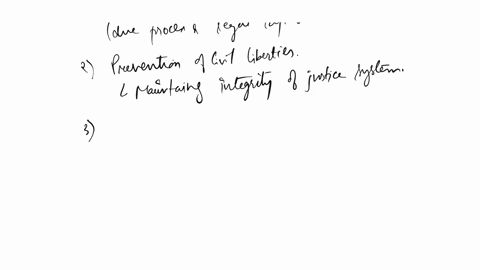 (due process &
2) Prevention of Civil liberties.
↳ Maintaing integrity of justice system.
3)